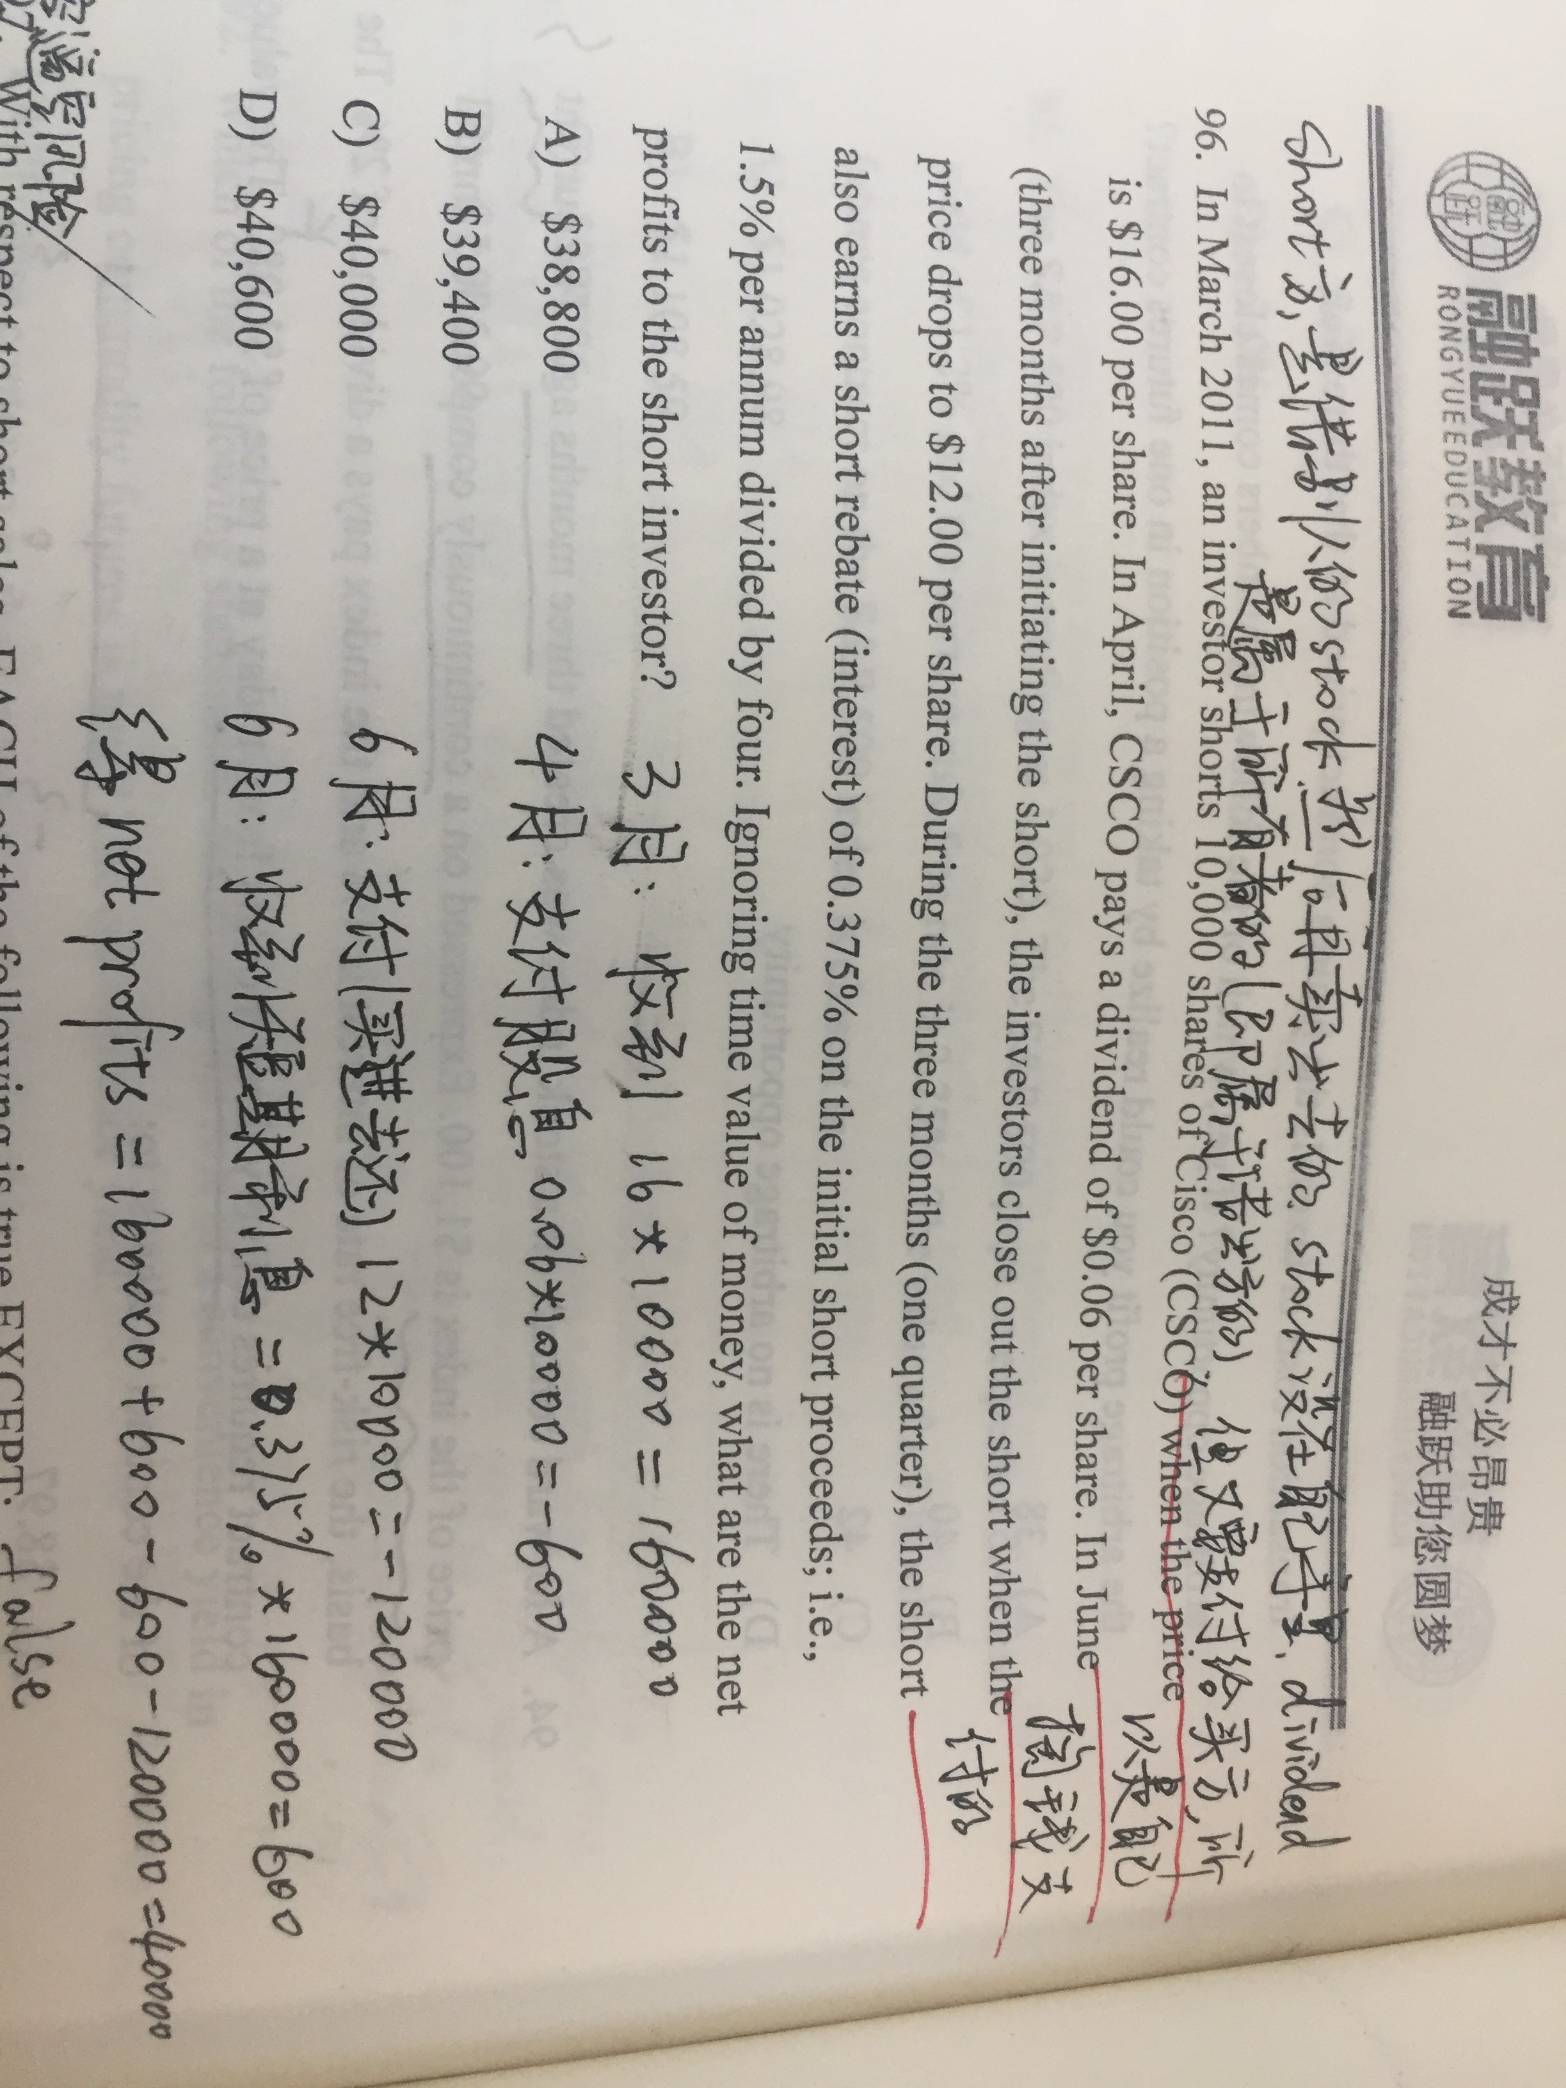 融跃教育
RONGYUEEDUCATION
成才不必昂贵
融跃助您圆梦
short方,是借别人的stock,然后再卖出去的. stock没在自己手里, dividend
是属于所有者的(即属于借出方的) 但又需要付给买方,所
以是自己
掏钱支
付的
96. In March 2011, an investor shorts 10,000 shares of Cisco (CSCO) when the price
is $16.00 per share. In April, CSCO pays a dividend of $0.06 per share. In June
(three months after initiating the short), the investors close out the short when the
price drops to $12.00 per share. During the three months (one quarter), the short
also earns a short rebate (interest) of 0.375% on the initial short proceeds; i.e.,
1.5% per annum divided by four. Ignoring time value of money, what are the net
profits to the short investor?
A) $38,800
B) $39,400
C) $40,000
D) $40,600
3月: 收到 16*10000=160000
4月: 支付股息 0.06*10000=-600
6月: 支付(买进去还) 12*10000=-120000
6月: 收到 利息=0.375%*160000=600
得 net profits = 160000+600-600-120000=40000
风险
With respect to short sales, EACH of the following is true EXCEPT: false